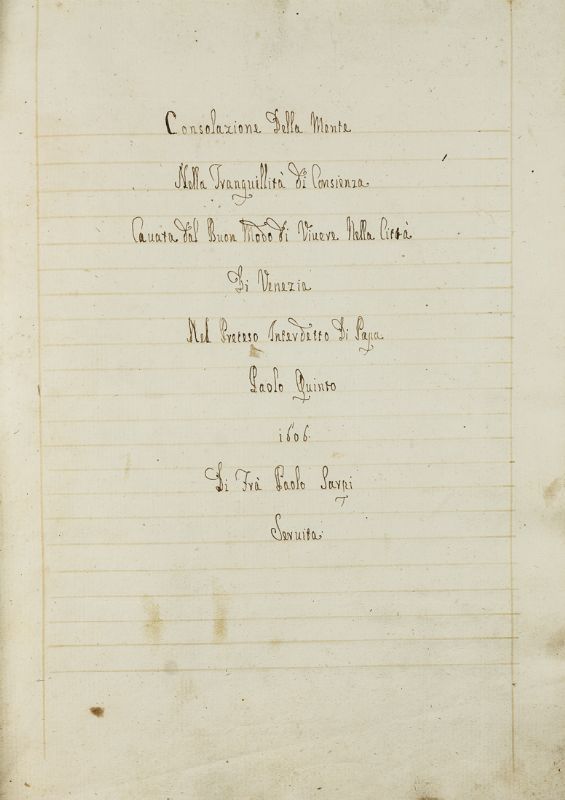 Consolazione Della Mente
Nella Tranquillità di Consienza
Cauata dal Buon Modo di Viuere Nella Città
Di Venezia
Nel Preteso Interdetto Di Papa
Paolo Quinto
1606
Di Frà Paolo Sarpi
Seruita